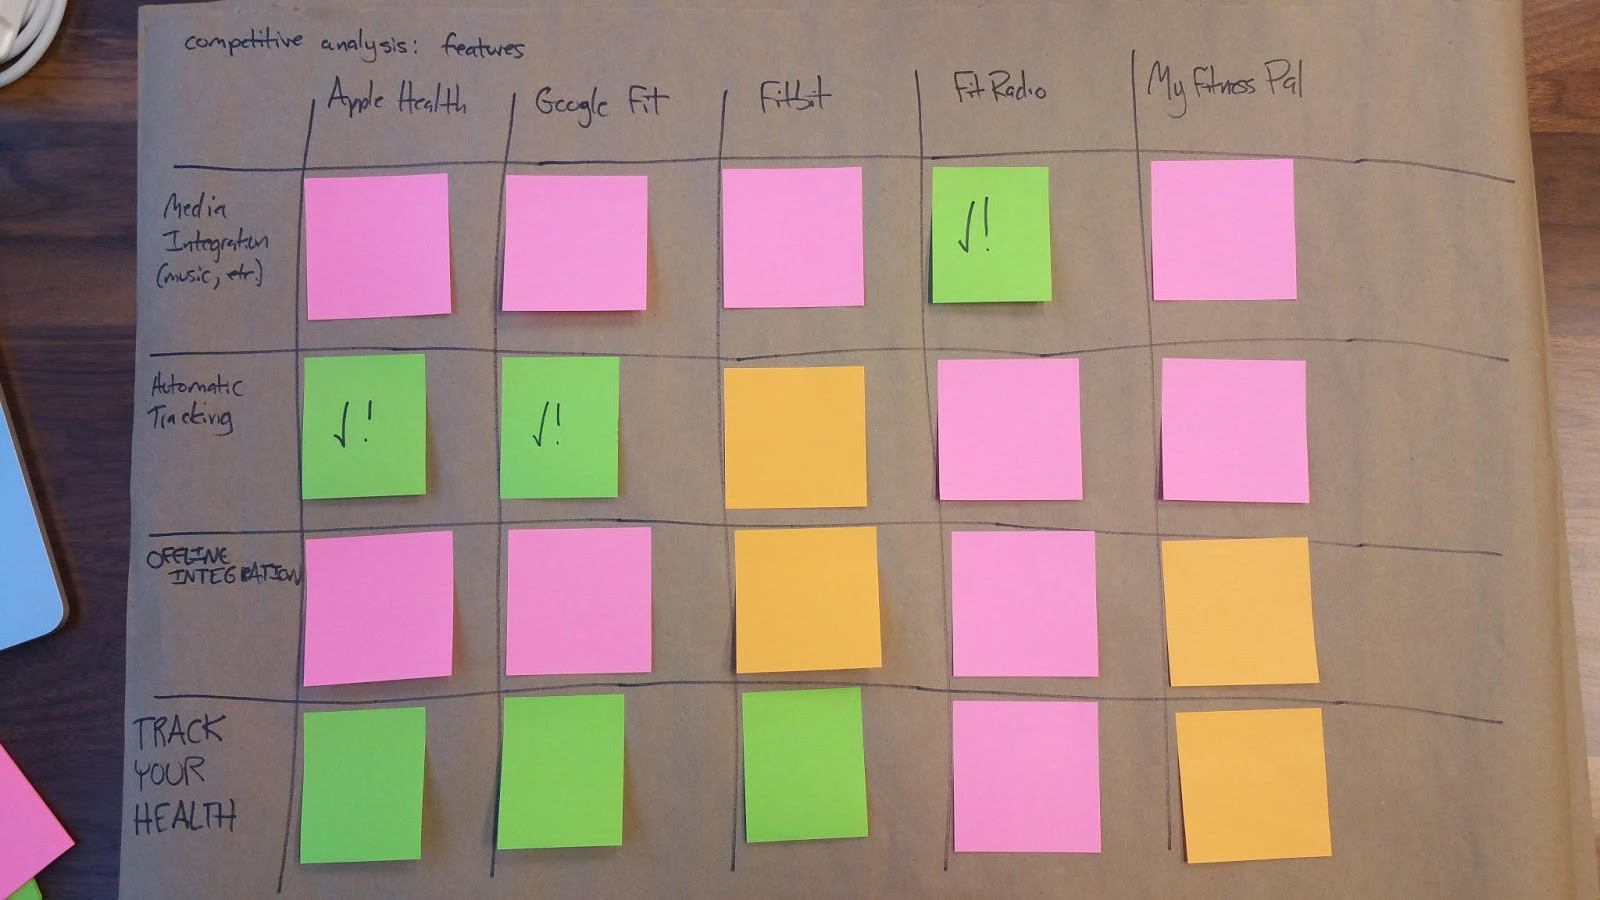 competitive analysis: features
Apple Health Google Fit Fitbit Fit Radio My Fitness Pal
Media
Integration
(music, etc.)
√!
Automatic
Tracking
√! √!
OFFLINE
INTEGRATION
TRACK
YOUR
HEALTH